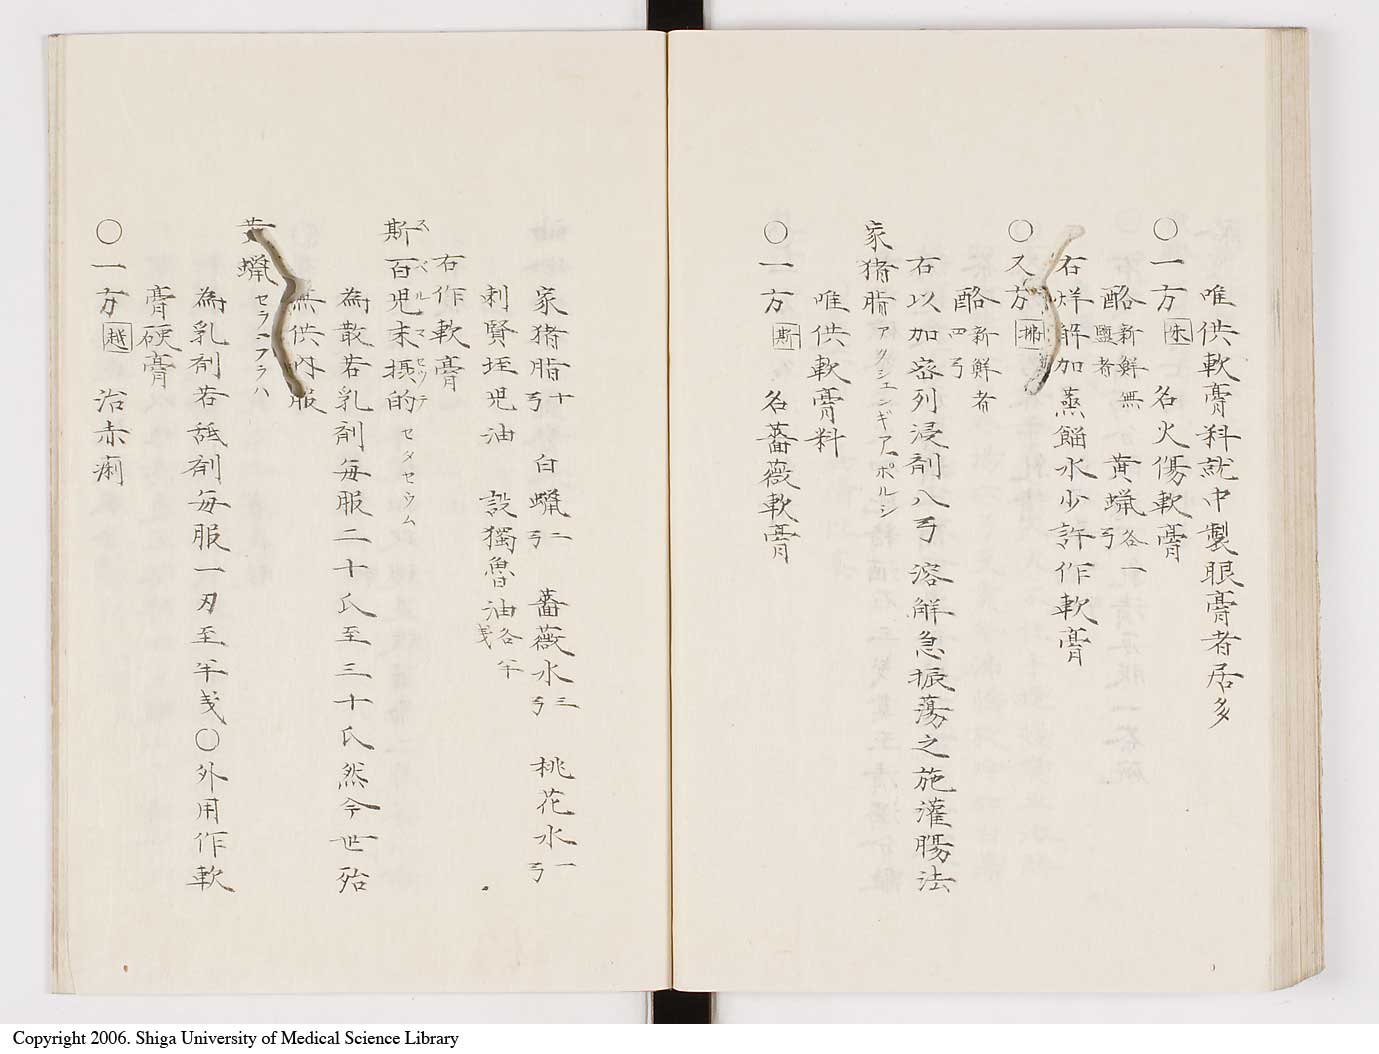 唯供軟膏料就中製眼膏者居多
〇一方 朱 名火傷軟膏
酪 新鮮無鹽者 黄蝋 各一弓
右烊解加蒸餾水少許作軟膏
〇又方
酪 新鮮者四弓
右以加密列浸劑八弓溶解急振蕩之施灌腸法
家猪脂 アクシュンギア、ポルシ
唯供軟膏料
〇一方 斯 名薔薇軟膏
家猪脂 十弓 白蝋 二弓 薔薇水 三弓 桃花水 一弓
刺賢垤児油 設獨魯油 各半戔
右作軟膏
斯百児末摂的 スペルマセツテ セタセウム
為散若乳劑毎服二十氏至三十氏然今世殆
無供内服
黄蝋 セラフラハ
為乳剤若舐剤毎服一刃至半戔〇外用作軟
膏硬膏
〇一方 越 治赤痢
Copyright 2006. Shiga University of Medical Science Library